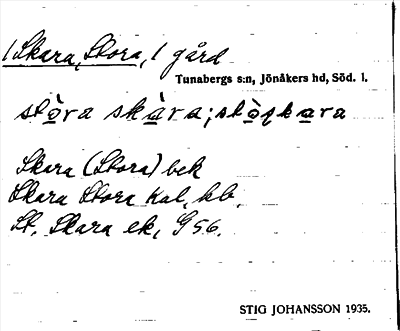 /Skara, Stora, / gård
Tunabergs s:n, Jönåkers hd, Söd. l.
stò̱ra skà̱ra; stò̱rka̱ra
Skara (Stora) bek
Skara Stora Kal, kb.
St. Skara ek, G 56.
STIG JOHANSSON 1935.